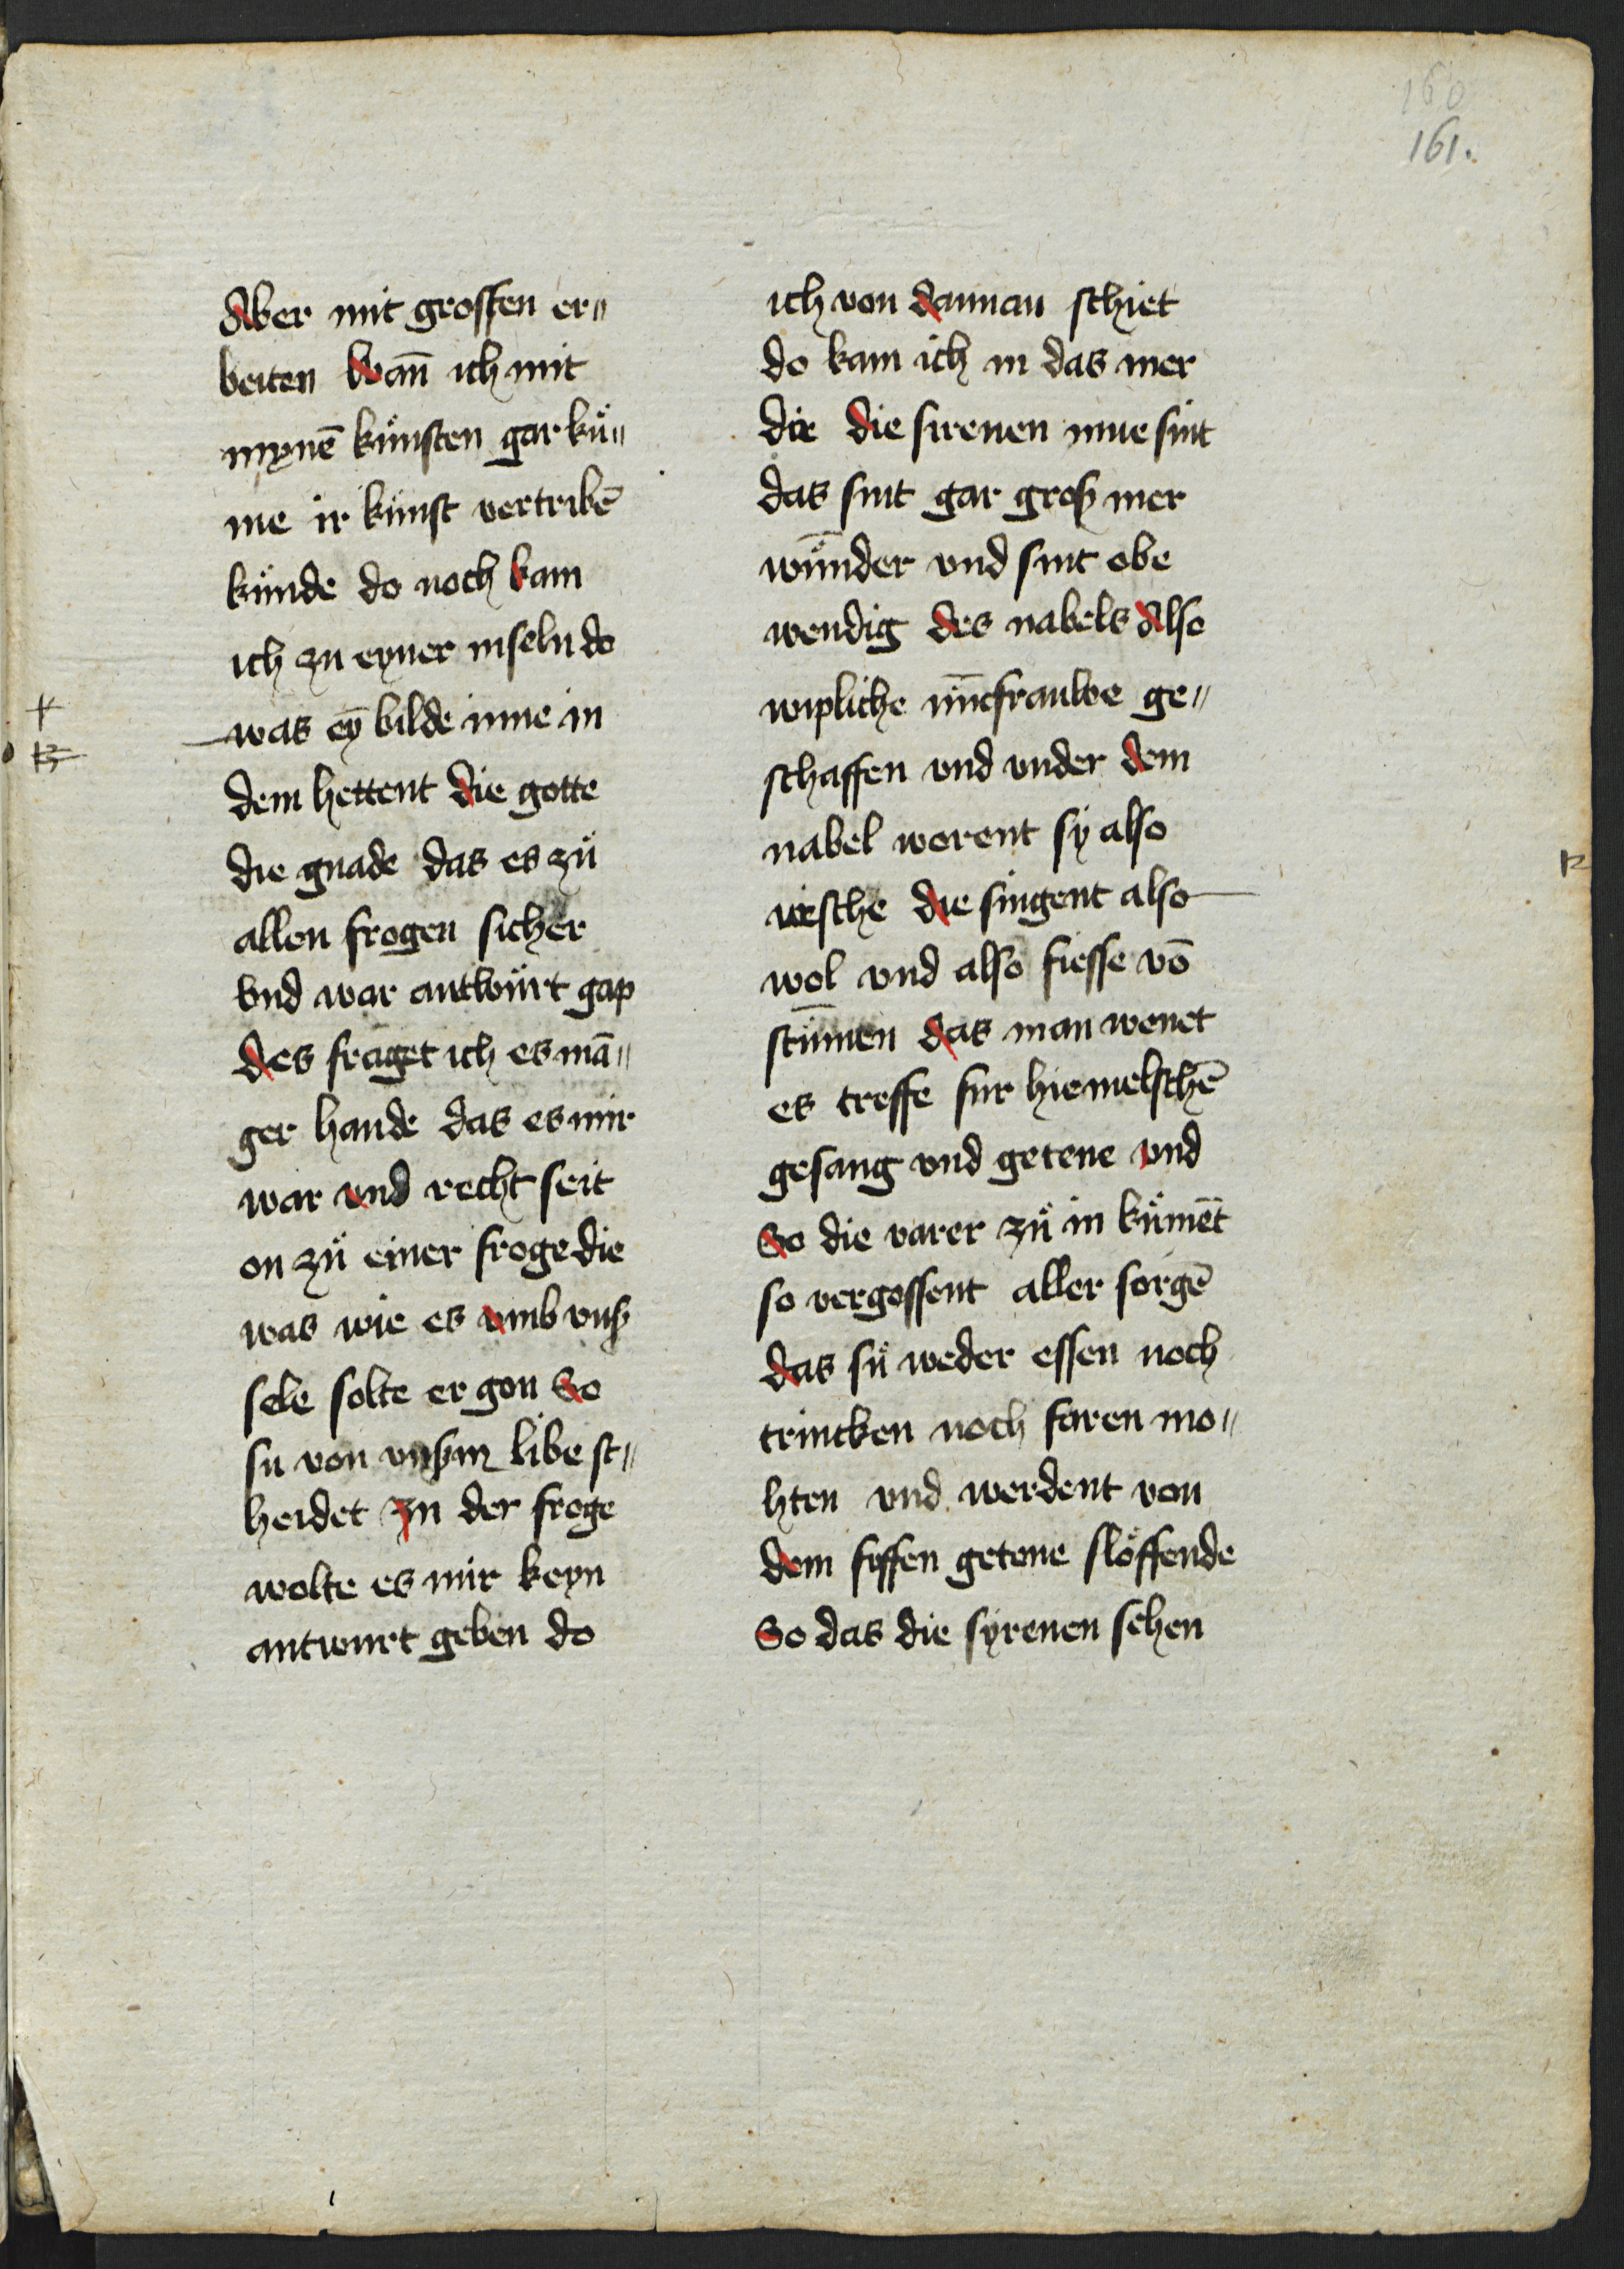 160
161.
Aber mit grossen er„
beiten Wan̄ ich mit
mynē kúnsten gar kú„
me ir kunst vertribē
kúnde do noch kam
ich zu eyner inseln do
was eȳ bilde inne in
dem hettent die gotte
die gnade das es zů
allen frogen sicher
Vnd war antwúrt gap
des fraget ich es mā„
ger hande das es mir
war vnd recht seit
on zů einer froge die
was wie es vmb vnß
sele solte er gon So
su von vnßm libe sc„
heidet zu der froge
wolte es mir keyn
antwurt geben do
ich von dannan schiet
do kam ich in das mer
die die sirenen inne sint
das sint gar groß mer
wūnder vnd sint obe
wendig des nabels Also
wipliche iūncfrauwe ge„
schaffen vnd vnder dem
nabel werent sy also
vische die singent also
wol vnd also susse vō
stīmen das man wenet
es treffe fur hiemelschē
gesang vnd getene vnd
So die varer zů in kúmēt
so vergossent aller sorgē
das sú weder essen noch
trincken noch faren mo„
hten vnd werdent von
dem sussen getene slöffende
So das die syrenen sehen